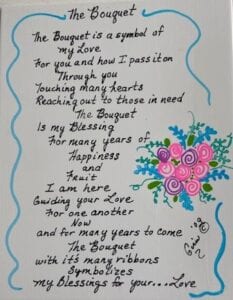 The Bouquet
The Bouquet is a symbol of
my Love
For you and how I pass it on
Through you
Touching many hearts
Reaching out to those in need
The Bouquet
Is my Blessing
For many years of
Happiness
and
Fruit
I am here
Guiding your Love
For one another
Now
and for many years to come
The Bouquet
with it's many ribbons
Symbolizes
my Blessings for your...Love